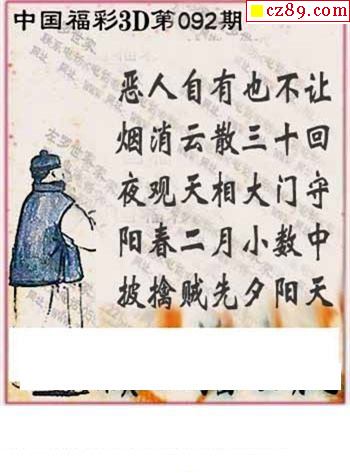 cz89.com
中国福彩3D第092期
恶人自有也不让
烟消云散三十回
夜观天相大门守
阳春二月小数中
披擒贼先夕阳天